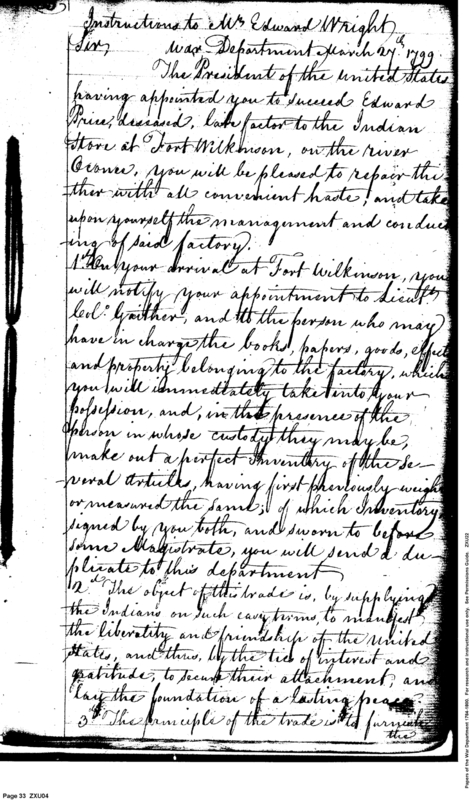 Instructions to Mr Edward Wright
Sir, War Department March 27th 1799
The President of the United States
having appointed you to succeed Edward
Price, deceased, late factor to the Indian
Store at Fort Wilkinson, on the river
Oconee, you will be pleased to repair thi
ther with all convenient haste, and take
upon yourself the management and conduct
ing of said factory.
1st On your arrival at Fort Wilkinson, you
will notify your appointment to Lieutt
Colo. Gaither, and to the person who may
have in charge the books, papers, goods, effects
and property belonging to the factory, which
you will immediately take into your
possession, and, in the presence of the
person in whose custody they may be,
make out a perfect Inventory of the Se-
veral Articles, having first previously weigh
or measured the same; of which Inventory
signed by you both, and sworn to before
some Magistrate, you will send a du-
plicate to this department
2d The object of this trade is, by supplying
the Indians on such easy terms, to manifest
the liberality and friendship of the United
States, and thus, by the ties of interest and
gratitude, to secure their attachment, and
lay the foundation of a lasting peace
3d The principle of the trade is to furnish
the
Page 33 ZXU04
Papers of the War Department 1784-1800. For research and instructional use only. See Permissions Guide. ZXU03